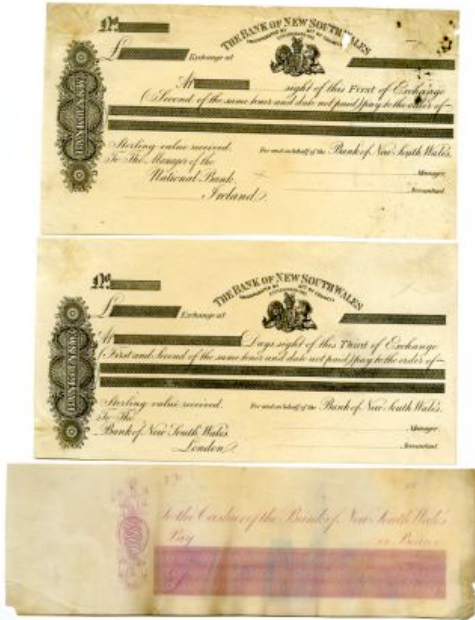 No
£ Exchange at
THE BANK OF NEW SOUTH WALES
INCORPORATED BY ACT OF COUNCIL
At sight of this First of Exchange
(Second of the same tenor and date not paid) pay to the order of
Sterling value received. For and on behalf of the Bank of New South Wales.
To The Manager of the
National Bank, Manager
Ireland. Accountant
No
£ Exchange at
THE BANK OF NEW SOUTH WALES
INCORPORATED BY ACT OF COUNCIL
At Days sight of this Third of Exchange
(First and Second of the same tenor and date not paid) pay to the order of
Sterling value received. For and on behalf of the Bank of New South Wales.
To The
Bank of New South Wales Manager
London. Accountant
To the Cashier of the Bank of New South Wales
Pay or Bearer
£